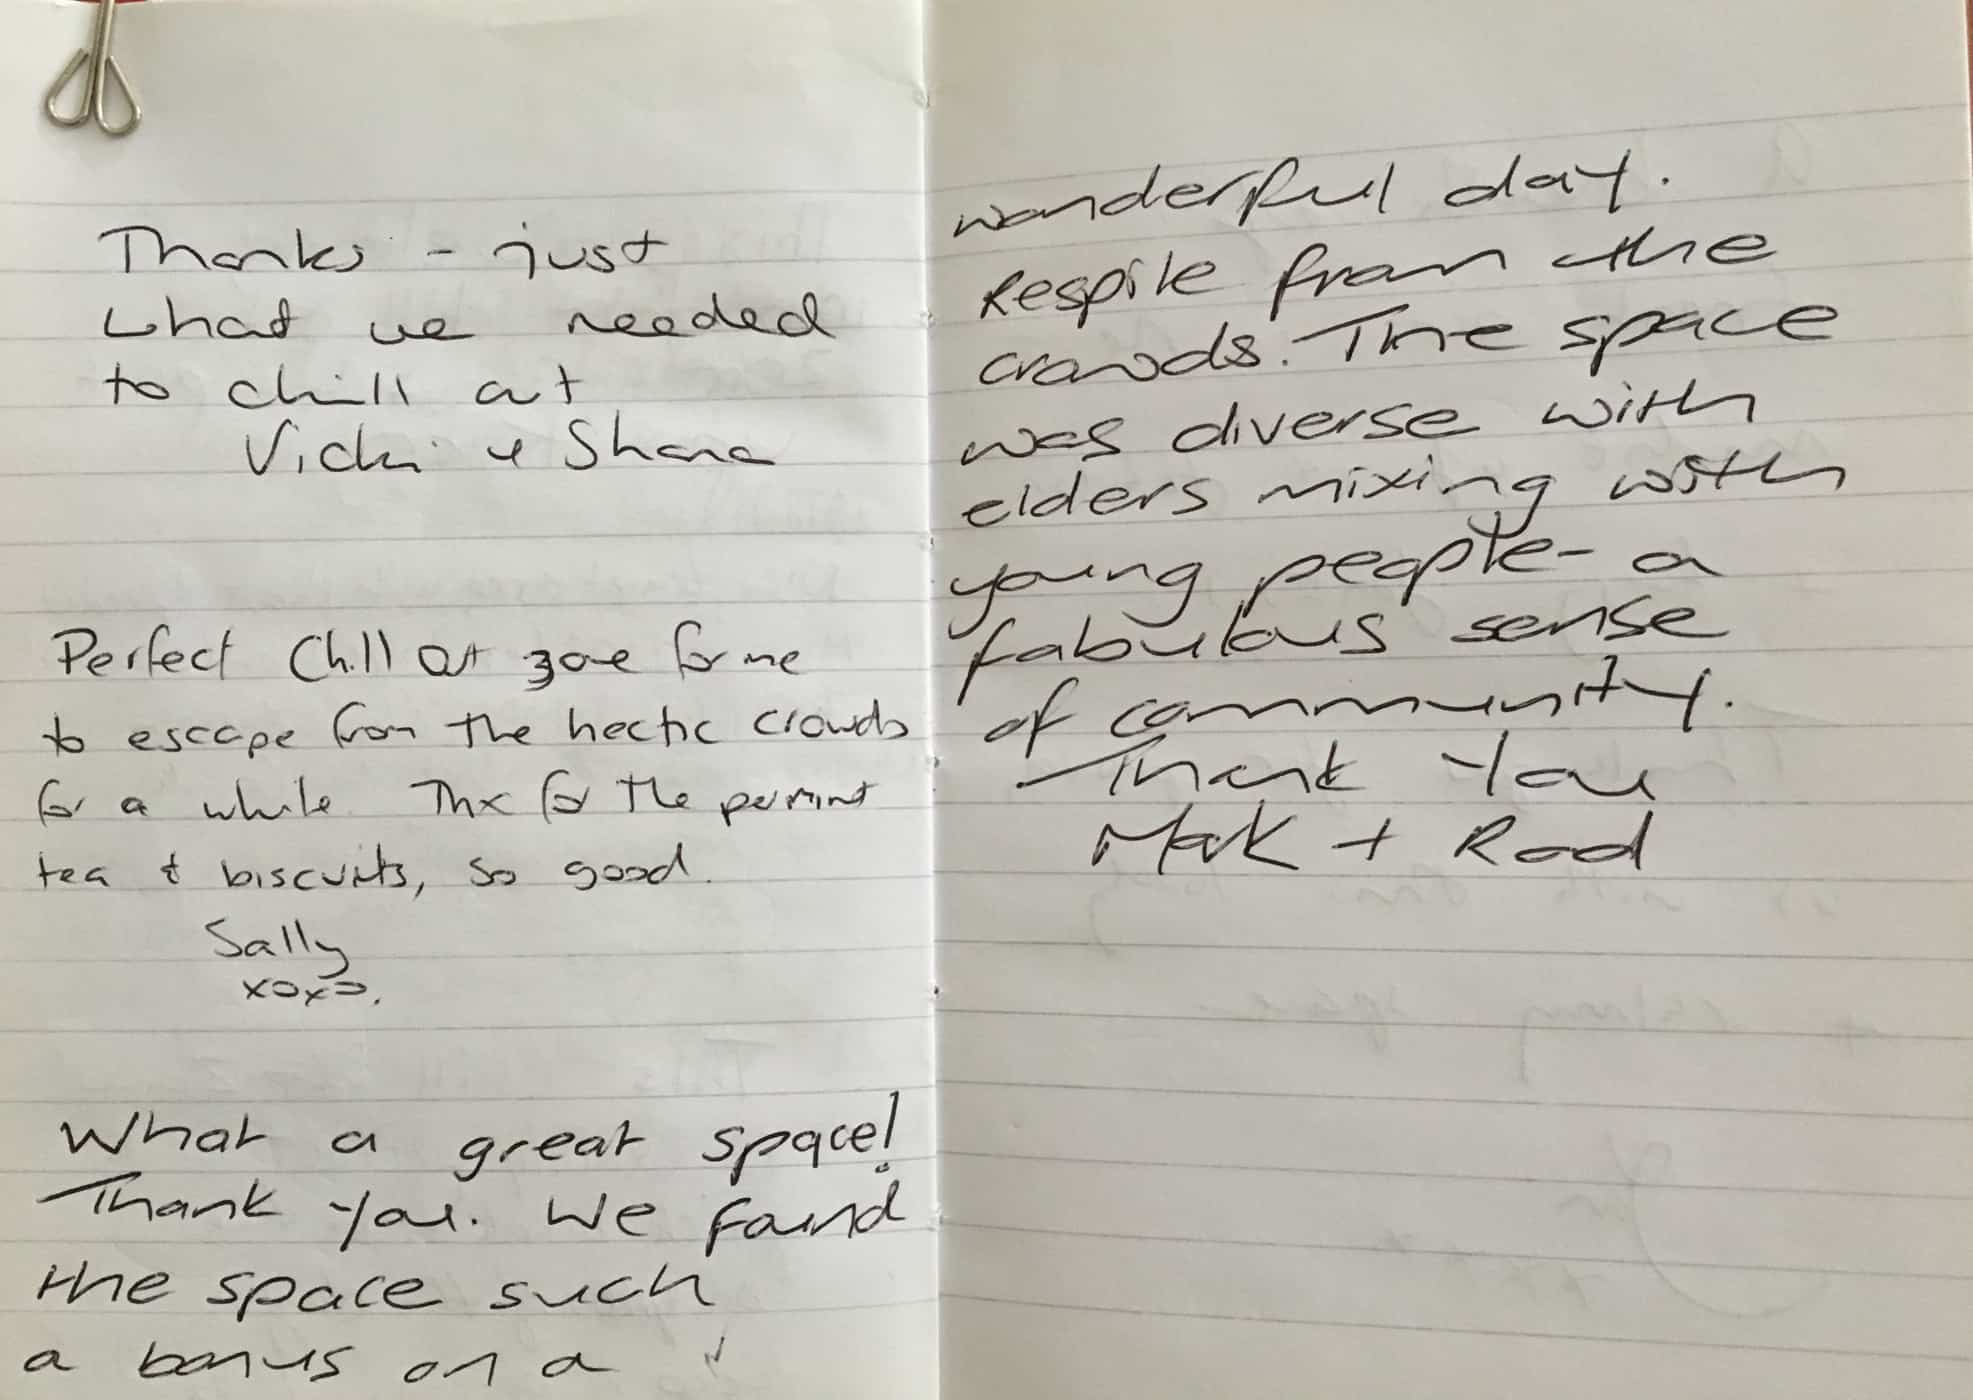 Thanks - just
what we needed
to chill out
Vicki & Shana
Perfect Chill Out zone for me
to escape from the hectic crowds
for a while. Thx for the permint
tea & biscuits, so good.
Sally
xoxo.
What a great space!
Thank you. We found
the space such
a bonus on a
wonderful day.
Respite from the
crowds. The space
was diverse with
elders mixing with
young people - a
fabulous sense
of community.
Thank You
Mark + Rod